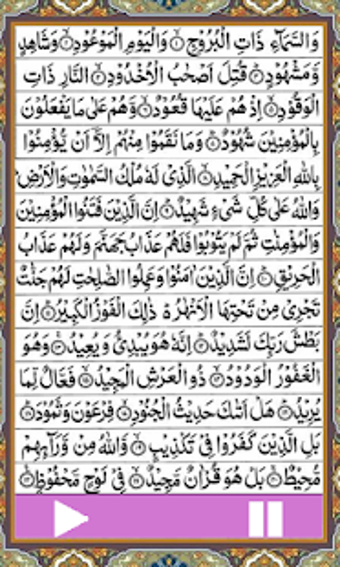 وَالسَّمَآءِ ذَاتِ الْبُرُوْجِ ۙ﴿۱﴾ وَالْيَوْمِ الْمَوْعُوْدِ ۙ﴿۲﴾ وَشَاهِدٍ
وَّمَشْهُوْدٍ ؕ﴿۳﴾ قُتِلَ اَصْحٰبُ الْاُخْدُوْدِ ۙ﴿۴﴾ النَّارِ ذَاتِ
الْوَقُوْدِ ۙ﴿۵﴾ اِذْ هُمْ عَلَيْهَا قُعُوْدٌ ۙ﴿۶﴾ وَّهُمْ عَلٰى مَا يَفْعَلُوْنَ
بِالْمُؤْمِنِيْنَ شُهُوْدٌ ؕ﴿۷﴾ وَمَا نَقَمُوْا مِنْهُمْ اِلَّاۤ اَنْ يُّؤْمِنُوْا
بِاللّٰهِ الْعَزِيْزِ الْحَمِيْدِ ۙ﴿۸﴾ الَّذِيْ لَهٗ مُلْكُ السَّمٰوٰتِ وَالْاَرْضِ ؕ
وَاللّٰهُ عَلٰى كُلِّ شَيْءٍ شَهِيْدٌ ؕ﴿۹﴾ اِنَّ الَّذِيْنَ فَتَنُوا الْمُؤْمِنِيْنَ
وَالْمُؤْمِنٰتِ ثُمَّ لَمْ يَتُوْبُوْا فَلَهُمْ عَذَابُ جَهَنَّمَ وَلَهُمْ عَذَابُ
الْحَرِيْقِ ؕ﴿۱۰﴾ اِنَّ الَّذِيْنَ اٰمَنُوْا وَعَمِلُوا الصّٰلِحٰتِ لَهُمْ جَنّٰتٌ
تَجْرِيْ مِنْ تَحْتِهَا الْاَنْهٰرُ ؕ ذٰلِكَ الْفَوْزُ الْكَبِيْرُ ؕ﴿۱۱﴾ اِنَّ
بَطْشَ رَبِّكَ لَشَدِيْدٌ ؕ﴿۱۲﴾ اِنَّهٗ هُوَ يُبْدِئُ وَيُعِيْدُ ۚ﴿۱۳﴾ وَهُوَ
الْغَفُوْرُ الْوَدُوْدُ ۙ﴿۱۴﴾ ذُو الْعَرْشِ الْمَجِيْدُ ۙ﴿۱۵﴾ فَعَّالٌ لِّمَا
يُرِيْدُ ؕ﴿۱۶﴾ هَلْ اَتٰىكَ حَدِيْثُ الْجُنُوْدِ ۙ﴿۱۷﴾ فِرْعَوْنَ وَثَمُوْدَ ؕ﴿۱۸﴾
بَلِ الَّذِيْنَ كَفَرُوْا فِيْ تَكْذِيْبٍ ۙ﴿۱۹﴾ وَّاللّٰهُ مِنْ وَّرَآئِهِمْ
مُّحِيْطٌ ۚ﴿۲۰﴾ بَلْ هُوَ قُرْاٰنٌ مَّجِيْدٌ ۙ﴿۲۱﴾ فِيْ لَوْحٍ مَّحْفُوْظٍ ﴿۲۲﴾